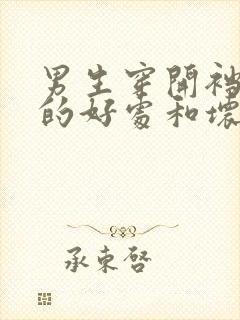 男生穿開裆
的好處和壞
承東啓